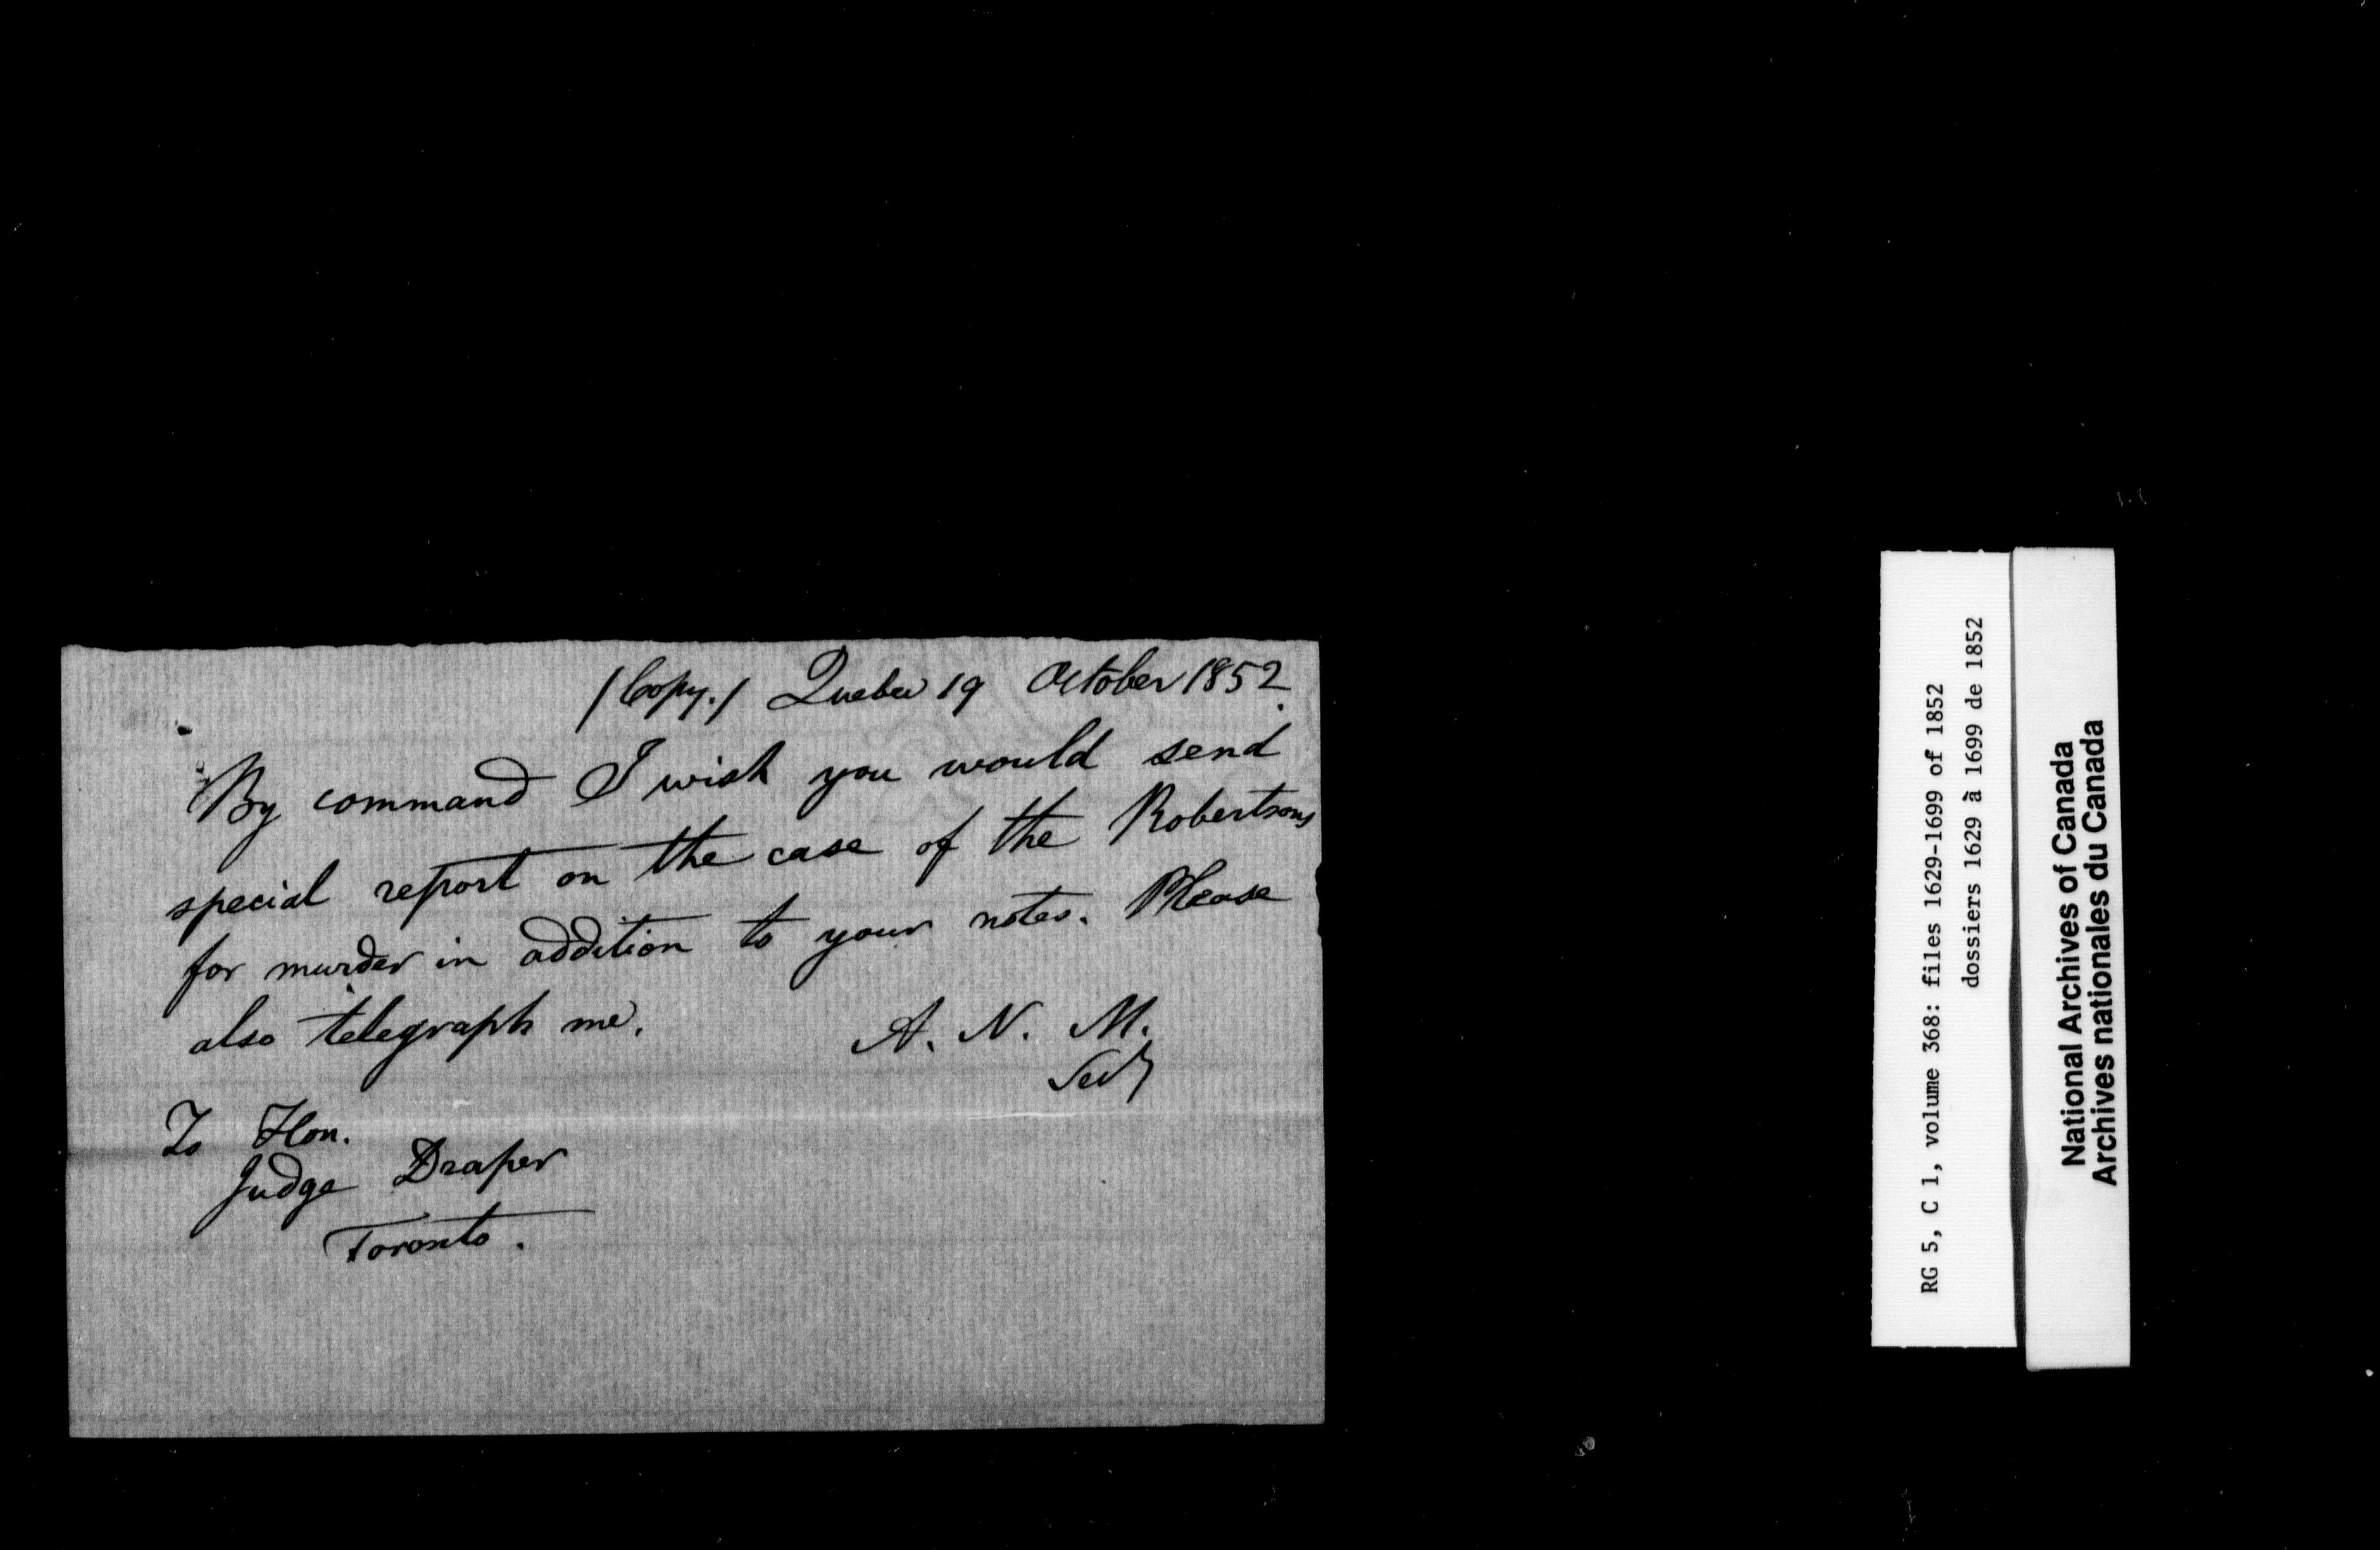 /Copy./ Quebec 19 October 1852.
By command I wish you would send
special report on the case of the Robertsons
for murder in addition to your notes. Please
also telegraph me.
A. N. M.
Secy
To Hon.
Judge Draper
Toronto.
RG 5, C 1, volume 368: files 1629-1699 of 1852
dossiers 1629 à 1699 de 1852
National Archives of Canada
Archives nationales du Canada